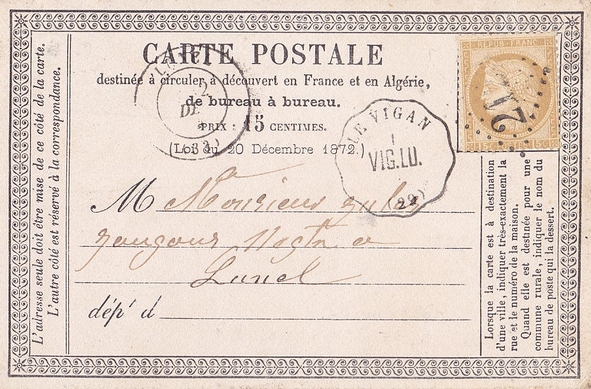 CARTE POSTALE
destinée à circuler à découvert en France et en Algérie,
de bureau à bureau.
PRIX : 15 CENTIMES.
(Loi du 20 Décembre 1872.)
M Monsieur
Lunel
dép^t d
L'adresse seule doit être mise de ce côté de la carte.
L'autre côté est réservé à la correspondance.
REPUB FRANC
15 C
LE VIGAN
1
VIG.LU.
Lorsque la carte est à destination
d'une ville, indiquer très-exactement la
rue et le numéro de la maison.
Quand elle est destinée pour une
commune rurale, indiquer le nom du
bureau de poste qui la dessert.